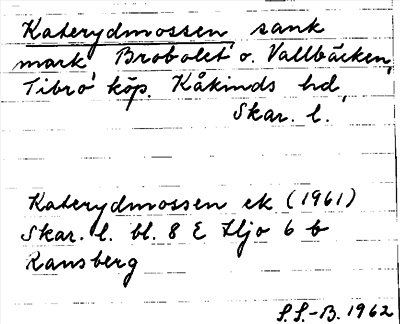 Katerydmossen sank
mark Brobolet o. Vallbäcken,
Tibro köp. Kåkinds hd,
Skar. l.
Katerydmossen ek (1961)
Skar. l. bl. 8 E Hjo 6 b
Ransberg
S.S.-B. 1962